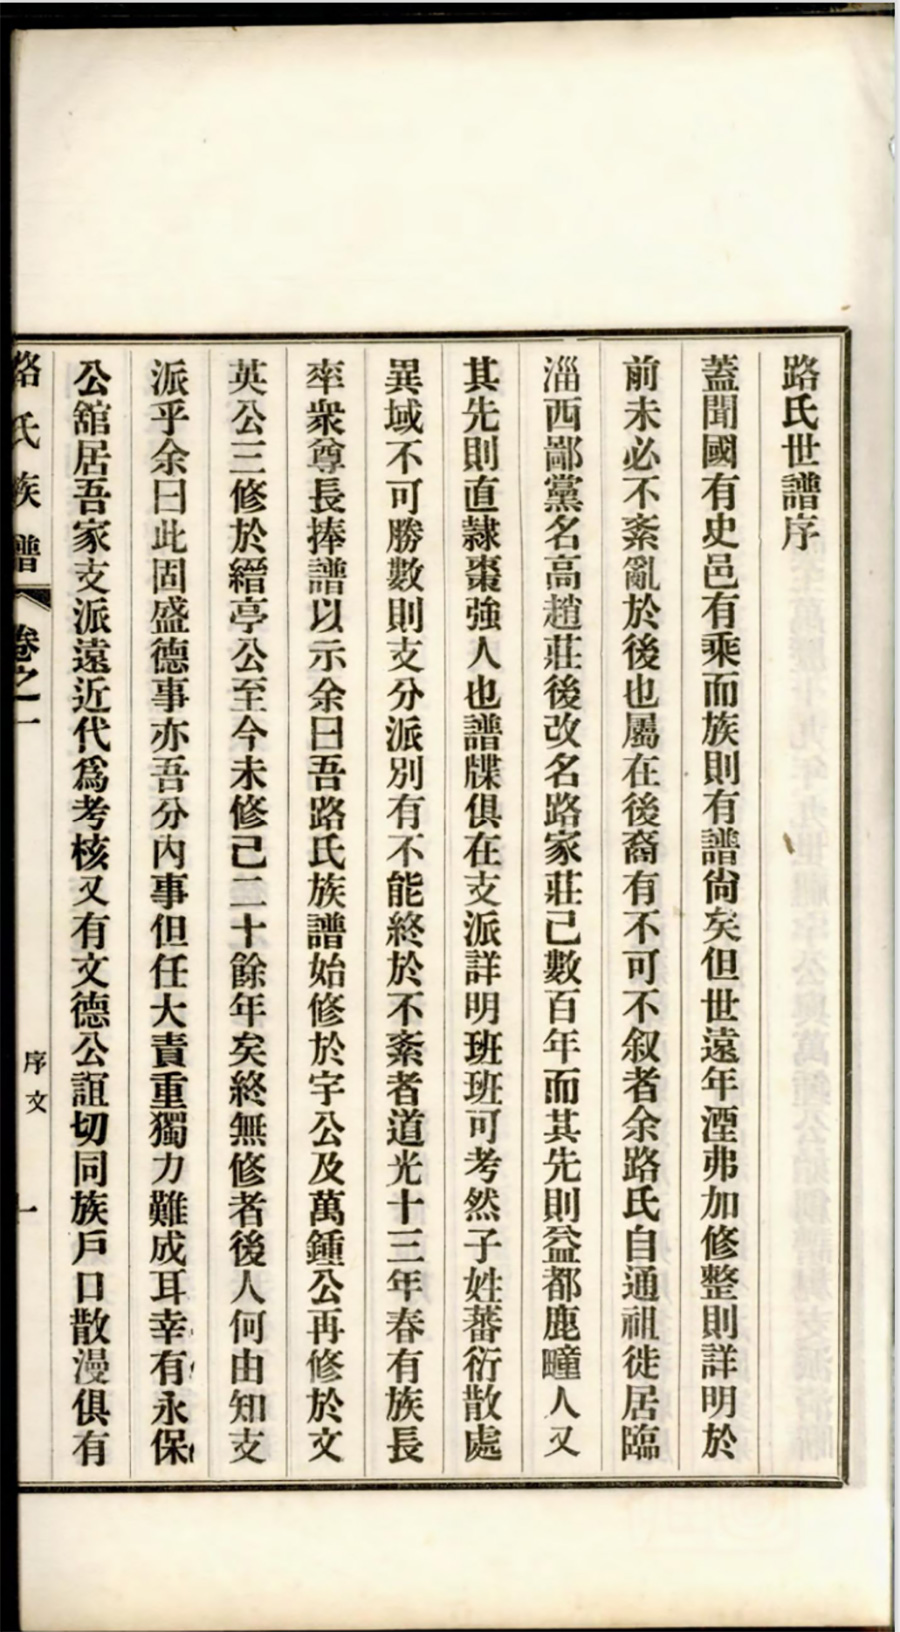 路氏世譜序
蓋聞國有史邑有乘而族則有譜尙矣但世遠年湮弗加修整則詳明於
前未必不紊亂於後也屬在後裔有不可不叙者余路氏自通祖徙居臨
淄西鄙黨名高趙莊後改名路家莊已數百年而其先則益都鹿疃人又
其先則直隷棗強人也譜牒俱在支派詳明班班可考然子姓蕃衍散處
異域不可勝數則支分派別有不能終於不紊者道光十三年春有族長
率衆尊長捧譜以示余曰吾路氏族譜始修於字公及萬鍾公再修於文
英公三修於縉亭公至今未修已二十餘年矣終無修者後人何由知支
派乎余曰此固盛德事亦吾分內事但任大責重獨力難成耳幸有永保
公舘居吾家支派遠近代爲考核又有文德公誼切同族戶口散漫俱有
路氏族譜 卷之一 序文 一